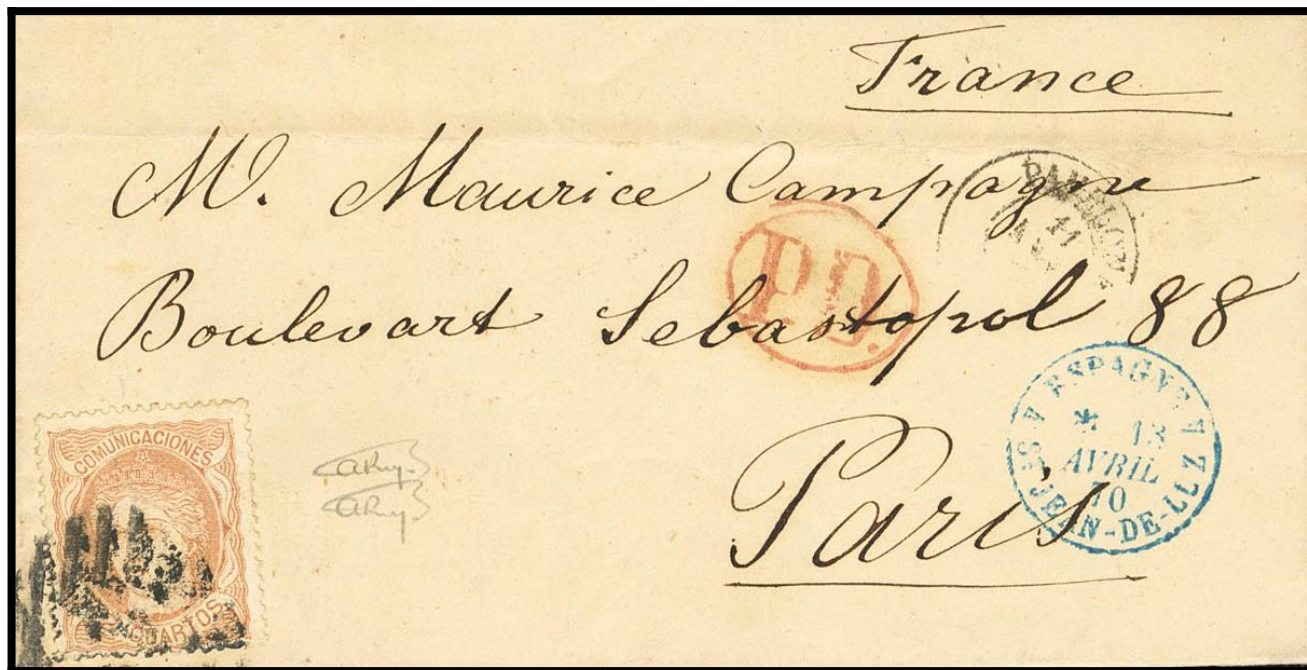 France
M. Maurice Campagne
Boulevart Sebastopol 88
Paris
P.D.
PAMPLONA
11
ESPAGNE
* 13
AVRIL
70
ST JEAN-DE-LUZ
COMUNICACIONES
CUARTOS